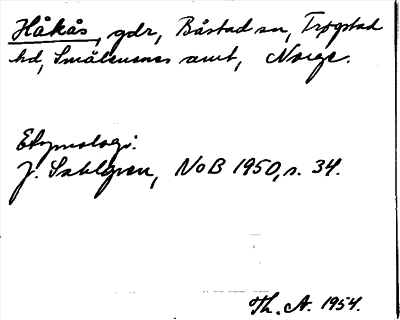 Håkås, gdr, Båstad sn, Trøgstad
hd, Smålenenes amt, Norge.
Etymologi:
J. Sahlgren, NoB 1950, s. 34.
Th. A. 1954.